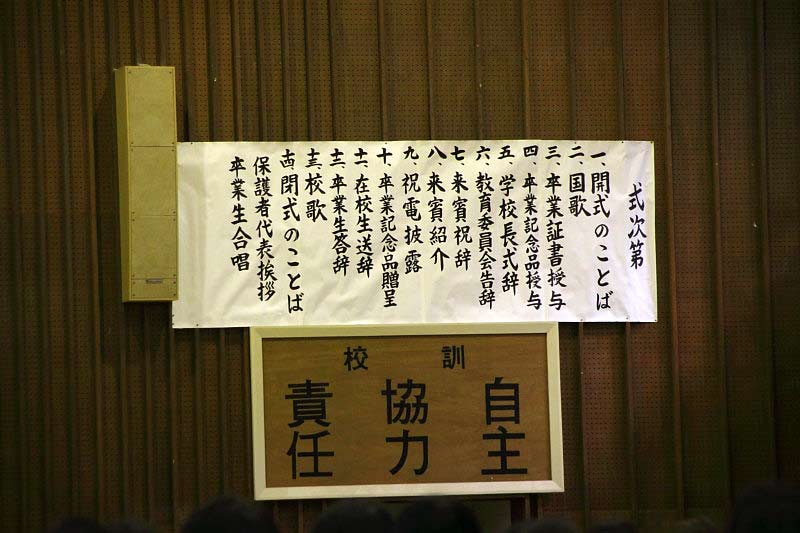 式次第
一、開式のことば
二、国歌
三、卒業証書授与
四、卒業記念品授与
五、学校長式辞
六、教育委員会告辞
七、来賓祝辞
八、来賓紹介
九、祝電披露
十、卒業記念品贈呈
十一、在校生送辞
十二、卒業生答辞
十三、校歌
十四、閉式のことば
保護者代表挨拶
卒業生合唱
校訓
自主
協力
責任